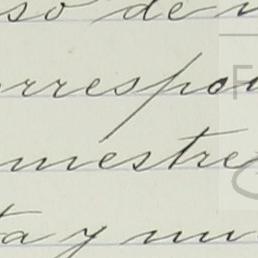 so de
correspo
mestre
ta y nu